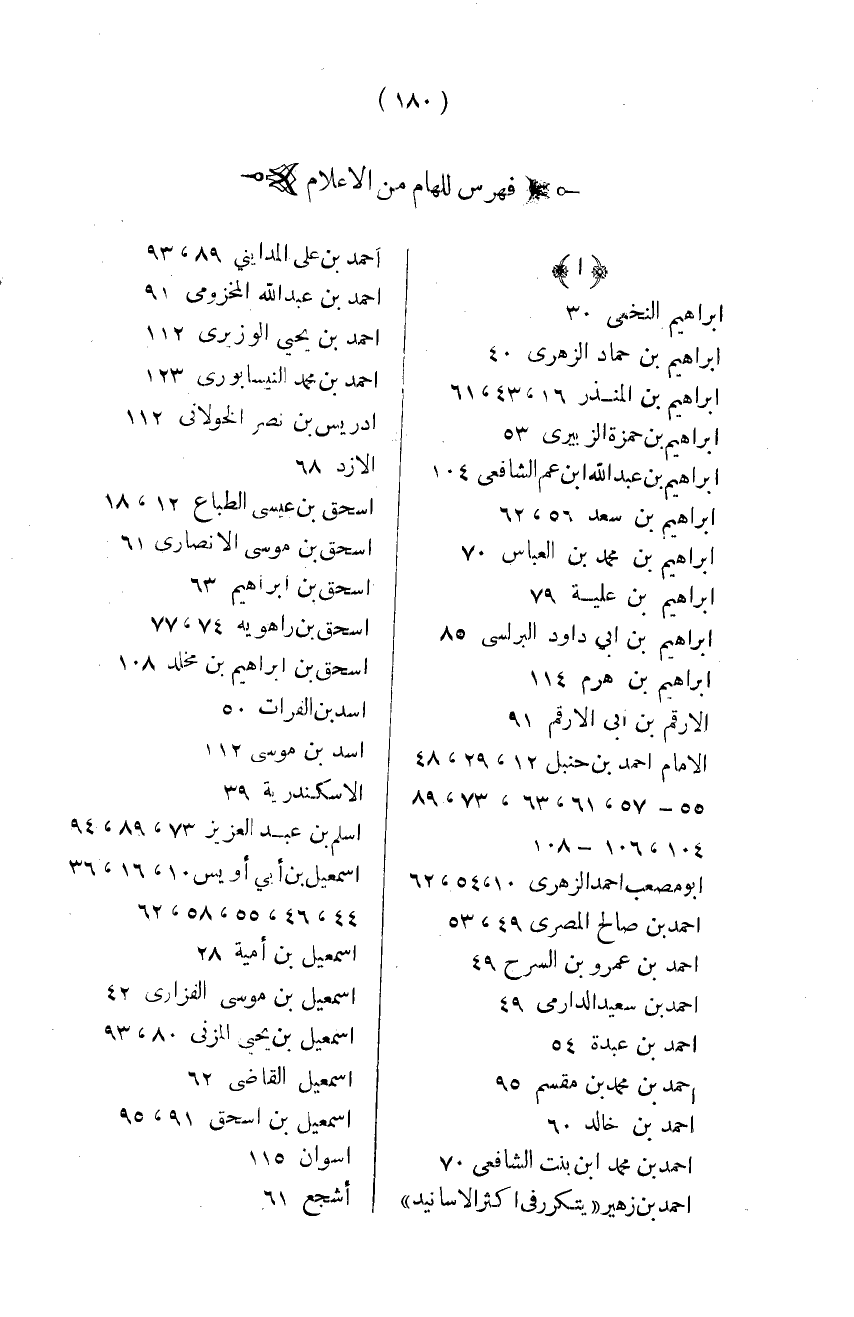 ( ١٨٠ )
فهرس للهام من الاعلام
﴿ ا ﴾
ابراهيم النخمى ٣٠
ابراهيم بن حماد الزهرى ٤٠
ابراهيم بن المنـذر ١٦ ، ٤٣ ، ٦١
ابراهيم بن حمزة الزبيرى ٥٣
ابراهيم بن عبدالله ابن عم الشافعى ١٠٤
ابراهيم بن سعد ٥٦ ، ٦٢
ابراهيم بن محمد بن العباس ٧٠
ابراهيم بن عليـة ٧٩
ابراهيم بن ابي داود البرلسى ٨٥
ابراهيم بن هرم ١١٤
الارقم بن أبى الارقم ٩١
الامام احمد بن حنبل ١٢ ، ٢٩ ، ٤٨
٥٥ – ٥٧ ، ٦١ ، ٦٣ ، ٧٣ ، ٨٩
١٠٤ ، ١٠٦ – ١٠٨
ابو مصعب احمد الزهرى ١٠ ، ٥٤ ، ٦٢
احمد بن صالح المصرى ٤٩ ، ٥٣
احمد بن عمرو بن السرح ٤٩
احمد بن سعيد الدارمى ٤٩
احمد بن عبدة ٥٤
احمد بن محمد بن مقسم ٩٥
احمد بن خالد ٦٠
احمد بن محمد ابن بنت الشافعى ٧٠
احمد بن زهير « يتكرر فى اكثر الاسانيد »
أحمد بن على المدايني ٨٩ ، ٩٣
احمد بن عبدالله المخزومى ٩١
احمد بن يحيي الوزيرى ١١٢
احمد بن محمد النيسابورى ١٢٣
ادريس بن نصر الخولانى ١١٢
الازد ٦٨
اسحق بن عيسى الطباع ١٢ ، ١٨
اسحق بن موسى الانصارى ٦١
اسحق بن ابراهيم ٦٣
اسحق بن راهويه ٧٤ ، ٧٧
اسحق بن ابراهيم بن مخلد ١٠٨
اسد بن الفرات ٥٠
اسد بن موسى ١١٢
الاسكندرية ٣٩
اسلم بن عبـد العزيز ٧٣ ، ٨٩ ، ٩٤
اسمعيل بن أبي أويس ١٠ ، ١٦ ، ٣٦
٤٤ ، ٤٦ ، ٥٥ ، ٥٨ ، ٦٢
اسمعيل بن أمية ٢٨
اسمعيل بن موسى الفزارى ٤٢
اسمعيل بن يحيي المزنى ٨٠ ، ٩٣
اسمعيل القاضى ٦٢
اسمعيل بن اسحق ٩١ ، ٩٥
اسوان ١١٥
أشجع ٦١